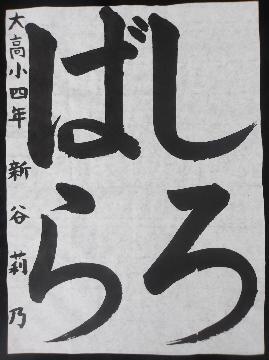 しろ
ばら
大高小四年 新谷莉乃